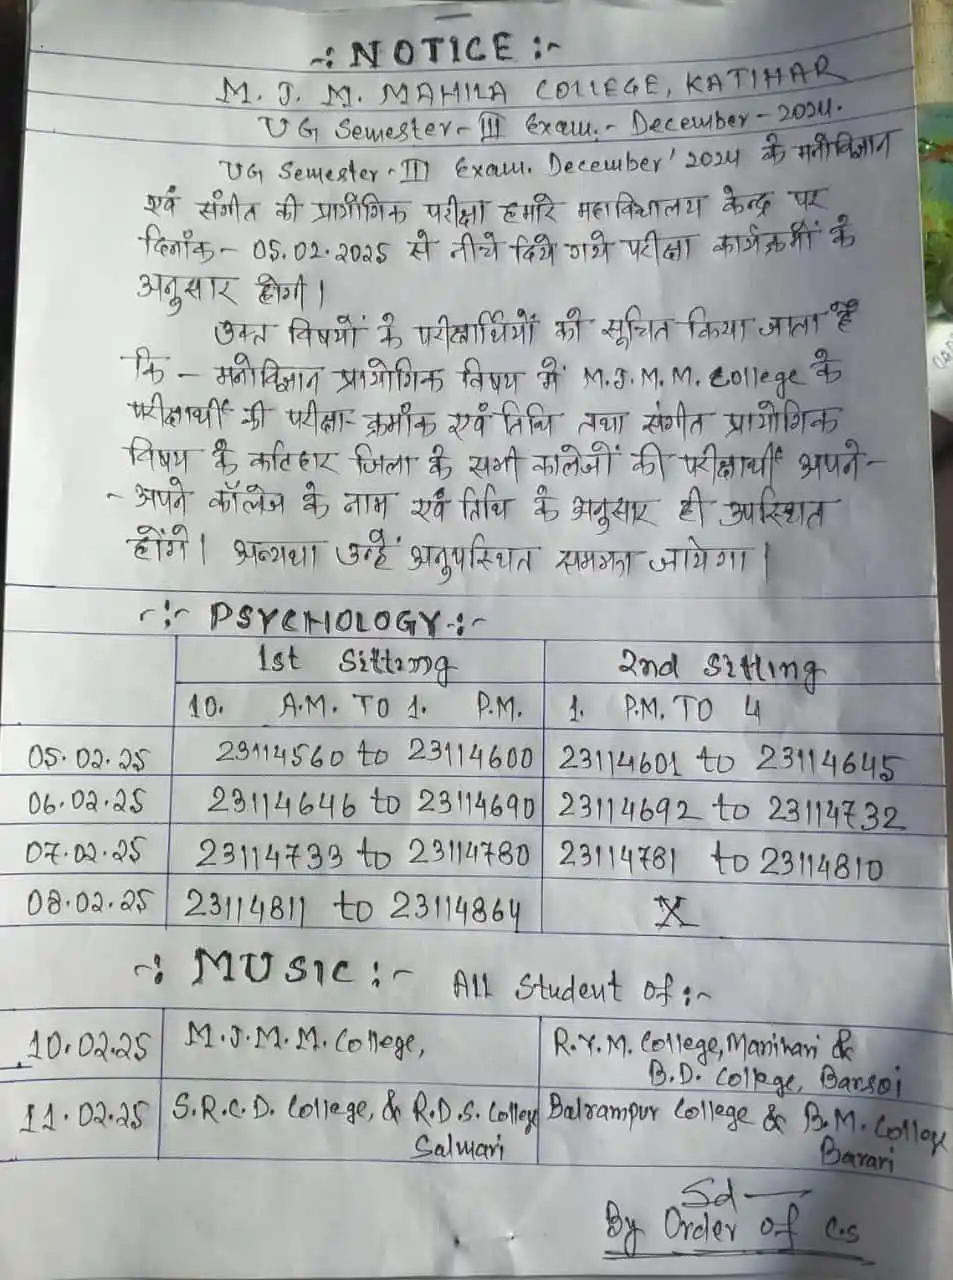 -: NOTICE :-
M. J. M. MAHILA COLLEGE, KATIHAR
UG Semester-III Exam.- December-2024.
UG Semester-III Exam. December' 2024 के मनोविज्ञान
एवं संगीत की प्रायोगिक परीक्षा हमारे महाविद्यालय केन्द्र पर
दिनाँक- 05.02.2025 से नीचे दिये गये परीक्षा कार्यक्रमों के
अनुसार होगी।
उक्त विषयों के परीक्षार्थियों को सूचित किया जाता है
कि - मनोविज्ञान प्रायोगिक विषय में M.J.M.M. College के
परीक्षार्थी की परीक्षा-क्रमाँक एवं तिथि तथा संगीत प्रायोगिक
विषय के कटिहार जिला के सभी कालेजों की परीक्षार्थी अपने-
-अपने कॉलेज के नाम एवं तिथि के अनुसार ही उपस्थित
होंगे। अन्यथा उन्हें अनुपस्थित समझा जायेगा।
-:- PSYCHOLOGY-:-
1st Sitting 2nd Sitting
10. A.M. TO 1. P.M. 1. P.M. TO 4
05.02.25 23114560 to 23114600 23114601 to 23114645
06.02.25 23114646 to 23114690 23114692 to 23114732
07.02.25 23114733 to 23114780 23114781 to 23114810
08.02.25 23114811 to 23114864 X
-: MUSIC :- All Student of :-
10.02.25 M.J.M.M. College, R.Y.M. College, Manihari &
B.D. College, Barsoi
11.02.25 S.R.C.D. College, & R.D.S. College Balrampur College & B.M. College
Salmari Barari
Sd-
By Order of C.S